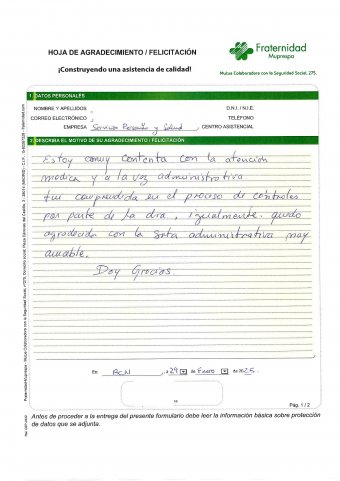 HOJA DE AGRADECIMIENTO / FELICITACIÓN
¡Construyendo una asistencia de calidad!
Fraternidad
Muprespa
Mutua Colaboradora con la Seguridad Social, 275.
1. DATOS PERSONALES
NOMBRE Y APELLIDOS : D.N.I. / N.I.E.
CORREO ELECTRÓNICO : TELÉFONO
EMPRESA Servicios Personas y Salud , CENTRO ASISTENCIAL
2. DESCRIBA EL MOTIVO DE SU AGRADECIMIENTO / FELICITACIÓN
Estoy muy contenta con la atención
medica y a la vez administrativa
fui comprendida en el proceso de controles
por parte de la dra, igualmente quedo
agradecida con la Srta administrativa muy
amable.
Doy Gracias.
En BCN , a 29 de Enero de 2025.
Pág. 1 / 2
Antes de proceder a la entrega del presente formulario debe leer la información básica sobre protección
de datos que se adjunta.